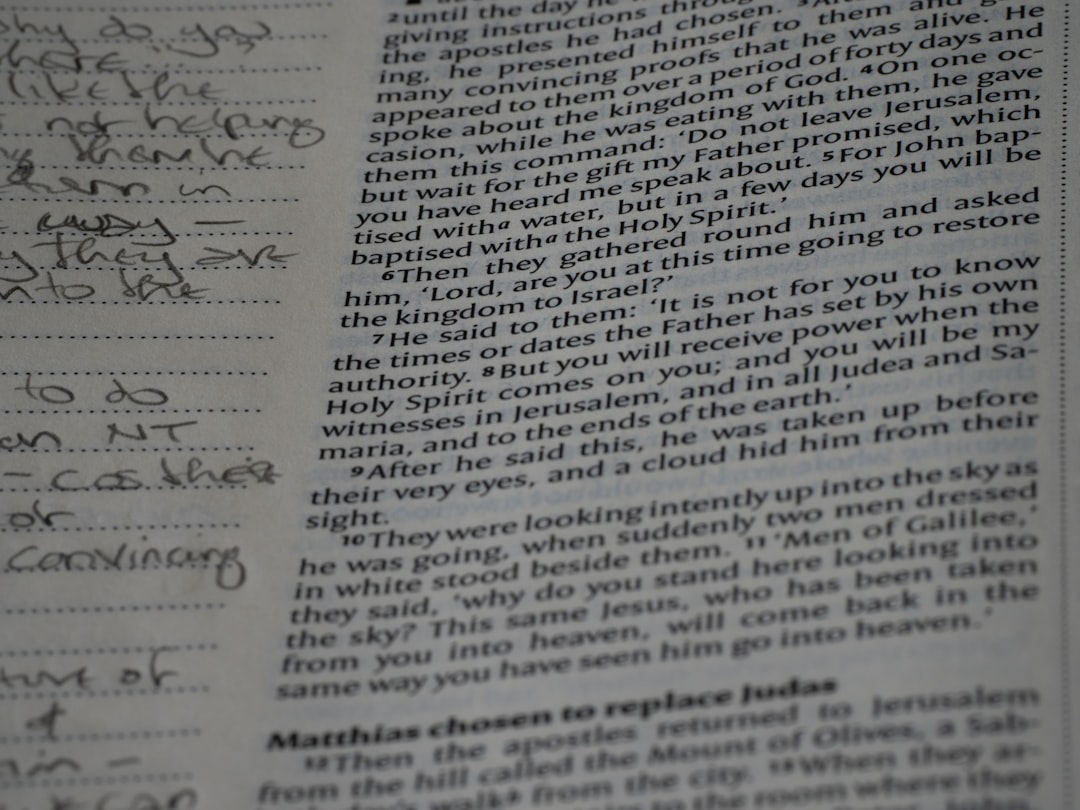 why do you
here...?
like the
not helping
them in
away -
they are
into the
to do
an NT
- cos
or
convincing
of
2until the day he
giving instructions
the apostles he had chosen.
ing, he presented himself to them and
many convincing proofs that he was alive. He
appeared to them over a period of forty days and
spoke about the kingdom of God. 4On one oc-
casion, while he was eating with them, he gave
them this command: ‘Do not leave Jerusalem,
but wait for the gift my Father promised, which
you have heard me speak about. 5For John bap-
tised witha water, but in a few days you will be
baptised witha the Holy Spirit.’
6Then they gathered round him and asked
him, ‘Lord, are you at this time going to restore
the kingdom to Israel?’
7He said to them: ‘It is not for you to know
the times or dates the Father has set by his own
authority. 8But you will receive power when the
Holy Spirit comes on you; and you will be my
witnesses in Jerusalem, and in all Judea and Sa-
maria, and to the ends of the earth.’
9After he said this, he was taken up before
their very eyes, and a cloud hid him from their
sight.
10They were looking intently up into the sky as
he was going, when suddenly two men dressed
in white stood beside them. 11‘Men of Galilee,’
they said, ‘why do you stand here looking into
the sky? This same Jesus, who has been taken
from you into heaven, will come back in the
same way you have seen him go into heaven.’
Matthias chosen to replace Judas
12Then the apostles returned to Jerusalem
from the hill called the Mount of Olives, a Sab-
walk from the city. 13When they ar-
to the room where they